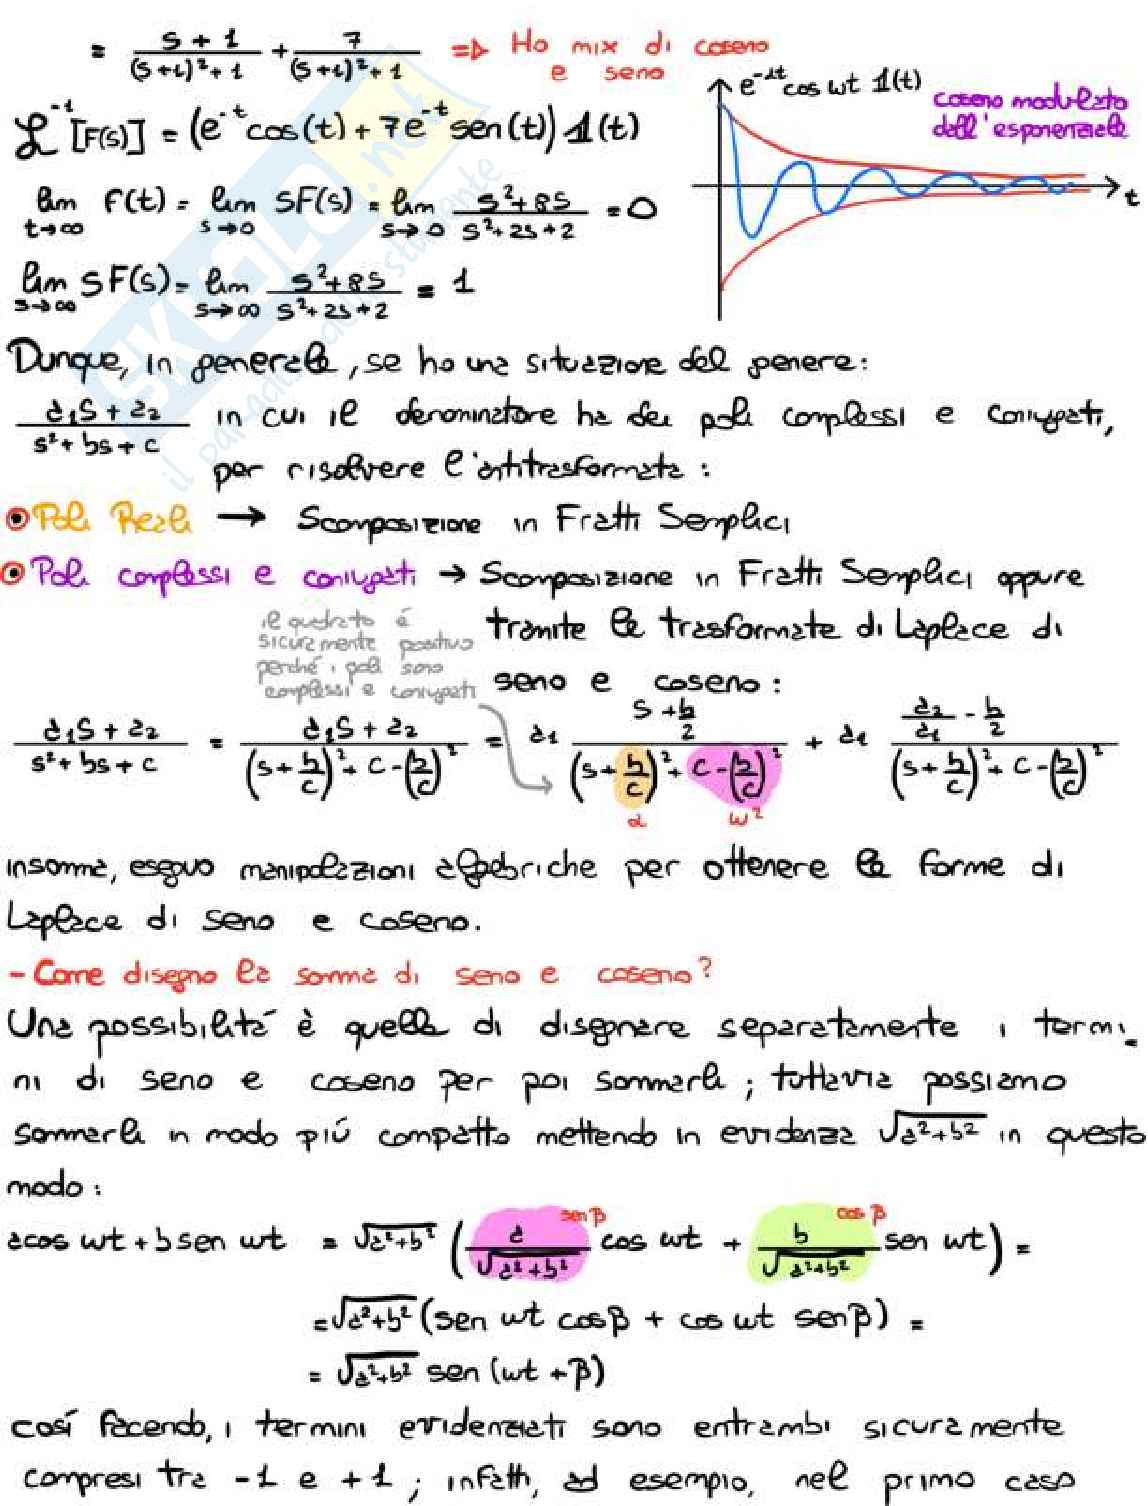 = \frac{s+1}{(s+1)^2+1} + \frac{7}{(s+1)^2+1} ⇒ Ho mix di coseno
e seno
e^{-αt} cos ωt 1(t)
coseno modulato
dall'esponenziale
t
ℒ^{-1}[F(s)] = (e^{-t} cos(t) + 7e^{-t} sen(t)) 1(t)
lim_{t→∞} f(t) = lim_{s→0} sF(s) = lim_{s→0} \frac{s^2+8s}{s^2+2s+2} = 0
lim_{s→∞} sF(s) = lim_{s→∞} \frac{s^2+8s}{s^2+2s+2} = 1
Dunque, in generale, se ho una situazione del genere:
\frac{a_1s + a_2}{s^2+bs+c} in cui il denominatore ha dei poli complessi e coniugati,
per risolvere l'antitrasformata:
Poli Reali → Scomposizione in Fratti Semplici
Poli complessi e coniugati → Scomposizione in Fratti Semplici oppure
tramite le trasformate di Laplace di
seno e coseno:
il quadrato é
sicuramente positivo
perché i poli sono
complessi e coniugati
\frac{a_1s + a_2}{s^2+bs+c} = \frac{a_1s + a_2}{(s+\frac{b}{c})^2 + c-(\frac{b}{c})^2} = a_1 \frac{s+\frac{b}{2}}{(s+\frac{b}{c})^2 + c-(\frac{b}{c})^2} + a_1 \frac{\frac{a_2}{a_1} - \frac{b}{2}}{(s+\frac{b}{c})^2 + c-(\frac{b}{c})^2}
α ω^2
insomma, eseguo manipolazioni algebriche per ottenere le forme di
Laplace di seno e coseno.
- Come disegno la somma di seno e coseno?
Una possibilitá è quella di disegnare separatamente i termi
ni di seno e coseno per poi sommarli; tuttavia possiamo
sommarli in modo piú compatto mettendo in evidenza \sqrt{a^2+b^2} in questo
modo:
senβ cosβ
acos ωt + bsen ωt = \sqrt{a^2+b^2} (\frac{a}{\sqrt{a^2+b^2}} cos ωt + \frac{b}{\sqrt{a^2+b^2}} sen ωt) =
= \sqrt{a^2+b^2} (sen ωt cosβ + cos ωt senβ) =
= \sqrt{a^2+b^2} sen (ωt + β)
cosí facendo, i termini evidenziati sono entrambi sicuramente
compresi tra -1 e +1; infatti, ad esempio, nel primo caso
SKUOLA.net
il paradiso dello studente